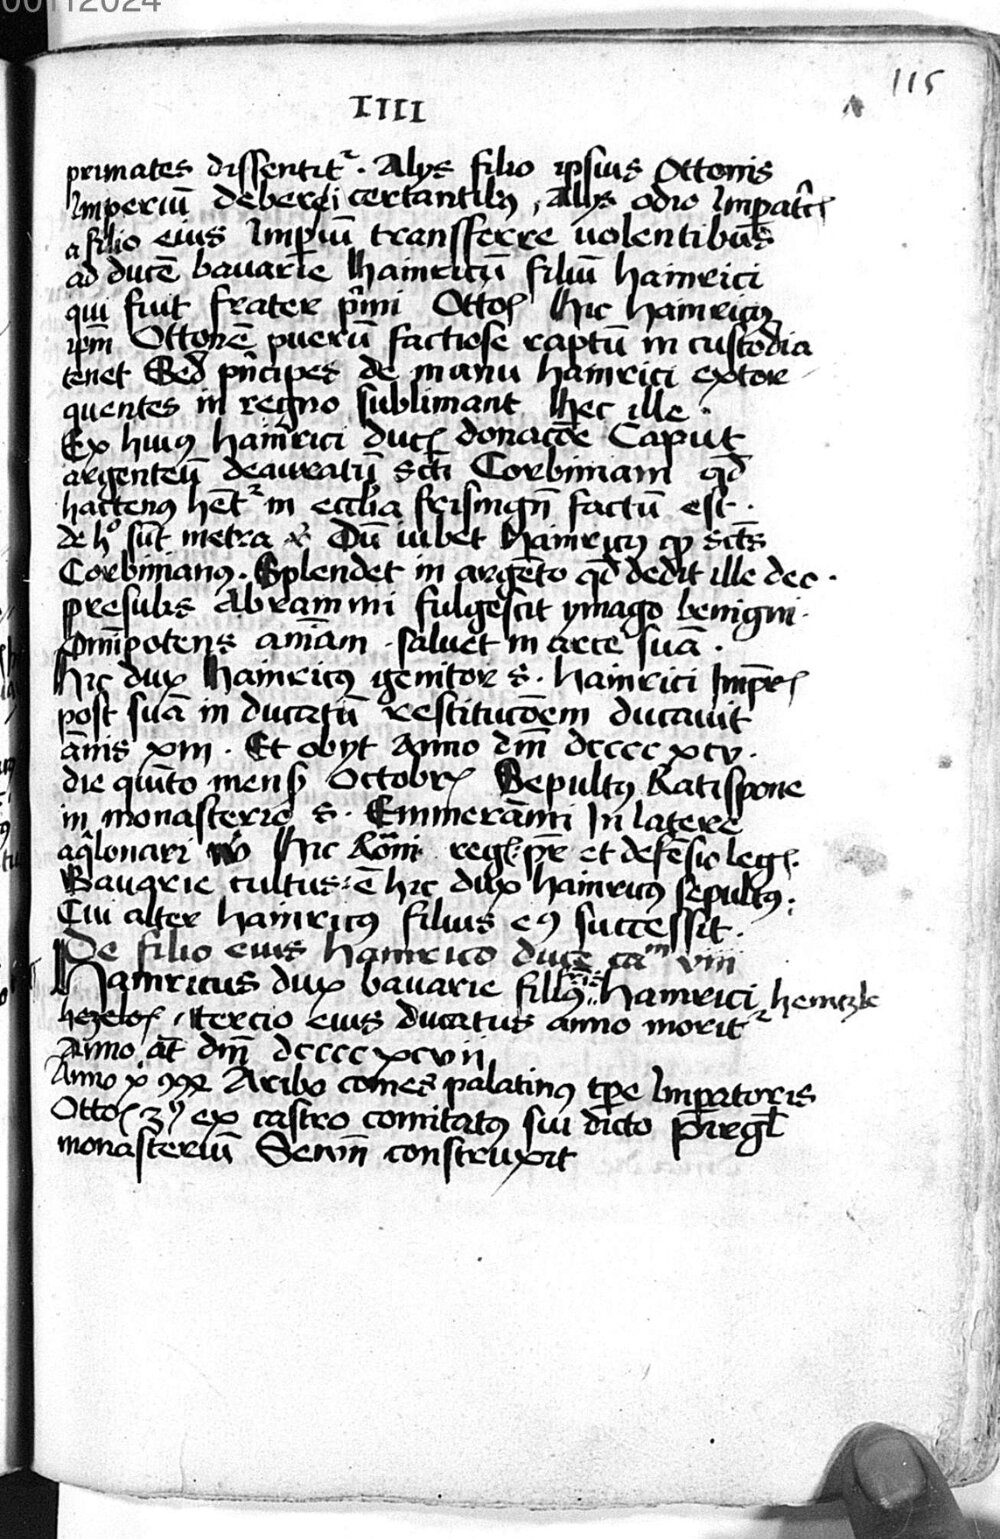 00112024
115
IIII
primates dissentitᷣ. Alys filio ipsius Ottonis
Imperiū deberi certantibꝫ, Alys odio Impatꝭ
a filio eius Impiū transfferre uolentibus
ad ducē bavarie Hainricū filiū hainrici
qui fuit frater pͥmi Ottoꝭ Hic hainricꝰ
ipm̄ Ottonē puerū factiose raptū in custodia
tenet Sed pͥncipes de manu hainrici extor
quentes in regno sublimant Hec ille.
Ex huiꝰ hainrici ducꝭ donacōe Caput
argenteū deauratū scti Corbiniani qd̄
hactenꝰ hētᷣ in eccl̄ia frisingn̄ factū est.
de hͦ sūt metra Dū iubet Hainricꝰ scts̄
Corbinianꝰ. Splendet in argēto qd̄ dedit ille deo.
presulis Abrammi fulgescit ymago benigni.
Omīpotens aniam saluet in arce suā.
Hic dux Hainricꝰ genitor S. hainrici Imp̄rꝭ
post suā in ducatū restitucōem ducauit
ānis xiii. Et obyt Anno dm̄ dcccc xcv.
die quīto mensꝭ Octobrꝭ Sepultꝰ Ratispone
in monasterio S. Emmerāmi In latere
aqͥlonari Hic Romi regꝭ. pr̄ et defēsio legꝭ.
Bavarie cultus: ē hic dux hainricꝰ sepultꝰ:
Cui alter hainricꝰ filius eꝰ successit.
De filio eius hainrico duce caᵐ viii
Hainricus dux bavarie fillꝰ hainrici heintzle
hezeloꝭ, tercio eius ducatus anno moritᷣ
Anno āt dm̄ dcccc xcvii
Anno Aribo comes palatinꝰ tꝑe Imꝑatoris
Ottoꝭ 3ꝰ ex castro comitatꝰ sui dicto
monasteriū Sewn̄ construxit